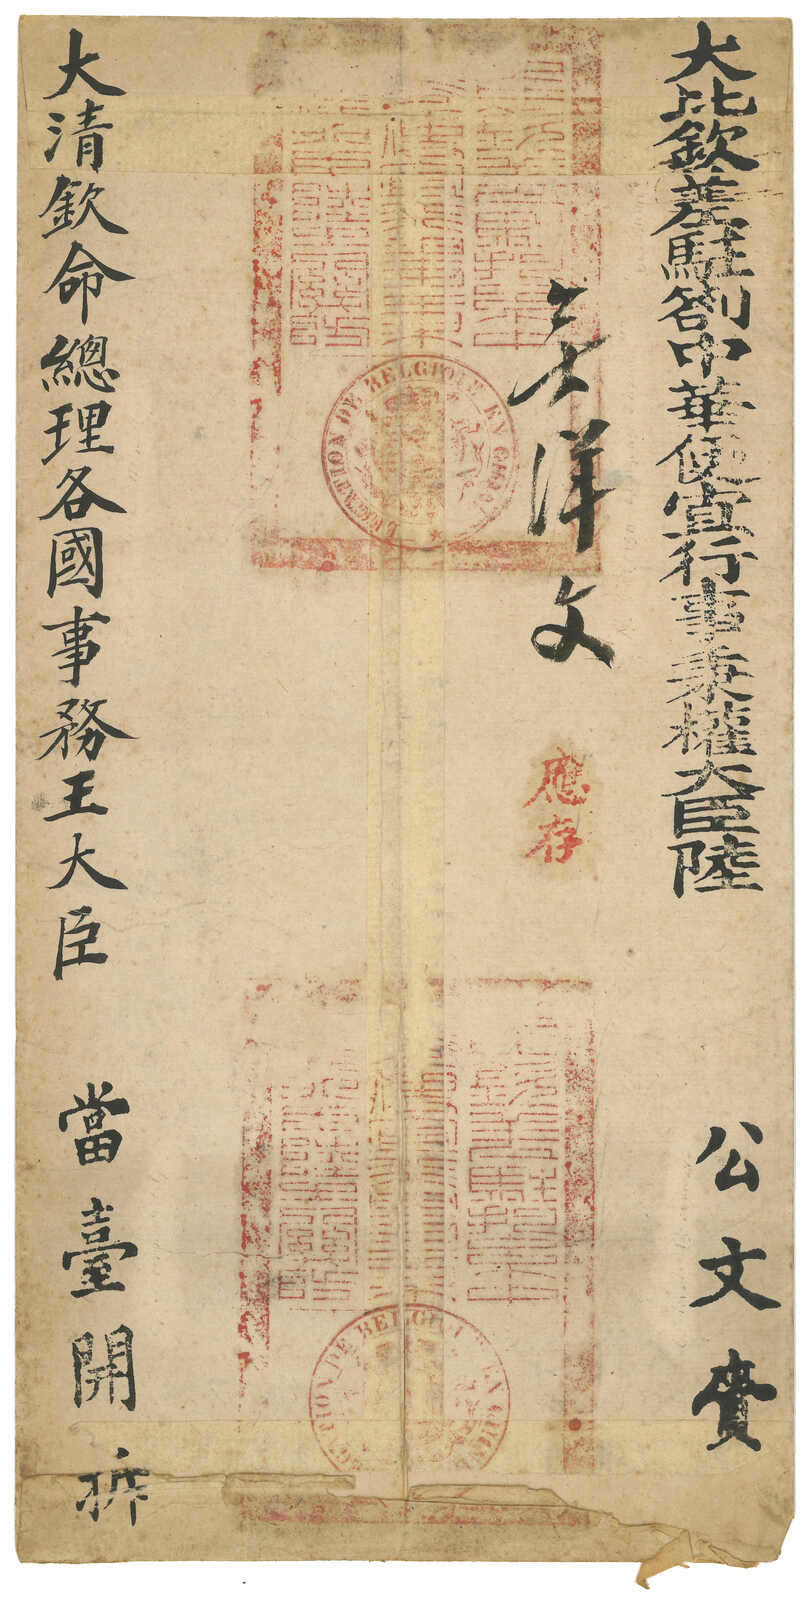 大比欽差駐劄中華便宜行事秉權大臣陸
公文賫
洋文
應存
LEGATION DE BELGIQUE EN CHINE
LEGATION DE BELGIQUE EN CHINE
大清欽命總理各國事務王大臣
當臺開拆